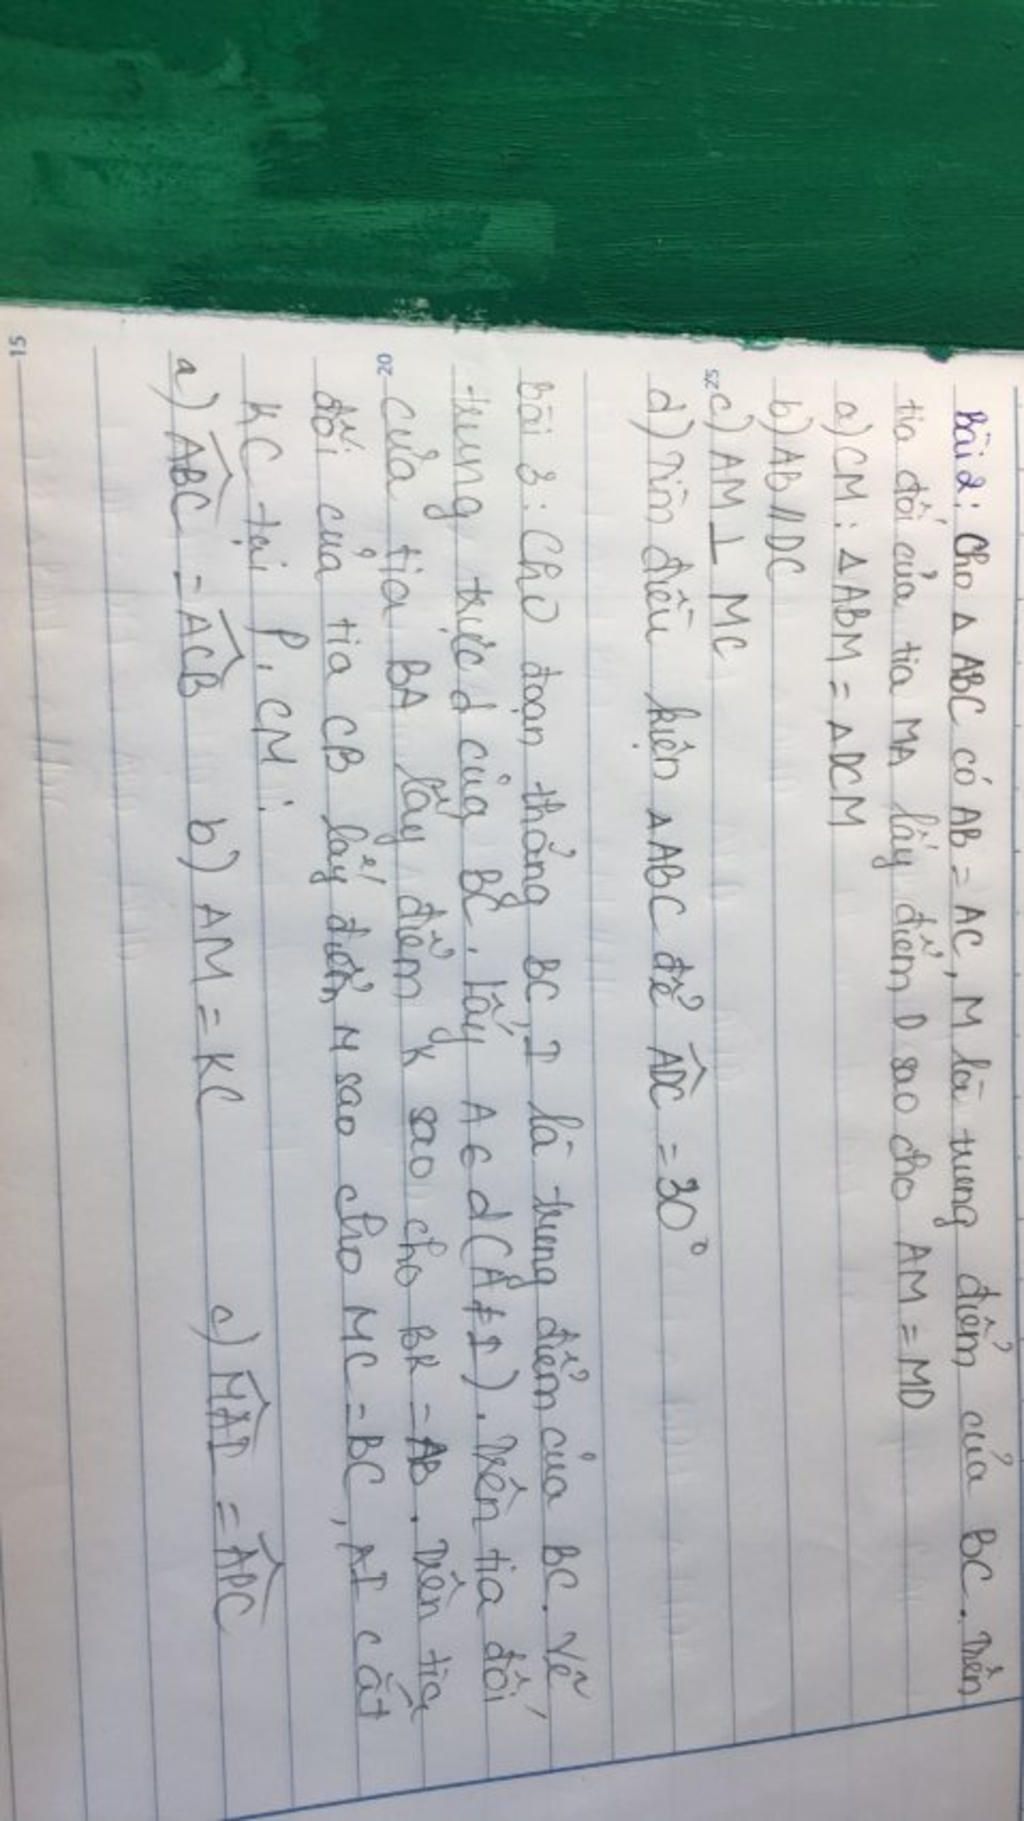 Bài 2: Cho Δ ABC có AB = AC, M là trung điểm của BC. Trên
tia đối của tia MA lấy điểm D sao cho AM = MD
a) CM: Δ ABM = Δ DCM
b) AB // DC
c) AM ⊥ MC
d) Tìm điều kiện Δ ABC để ADC = 30°
Bài 3: Cho đoạn thẳng BC, I là trung điểm của BC. Vẽ
trung trực d của BC. Lấy A ∈ d (A ≠ I). Trên tia đối
của tia BA lấy điểm K sao cho BK = AB. Trên tia
đối của tia CB lấy điểm M sao cho MC = BC, AI cắt
KC tại P. CM:
a) ABC = ACB b) AM = KC c) MAI = APC
25
20
15